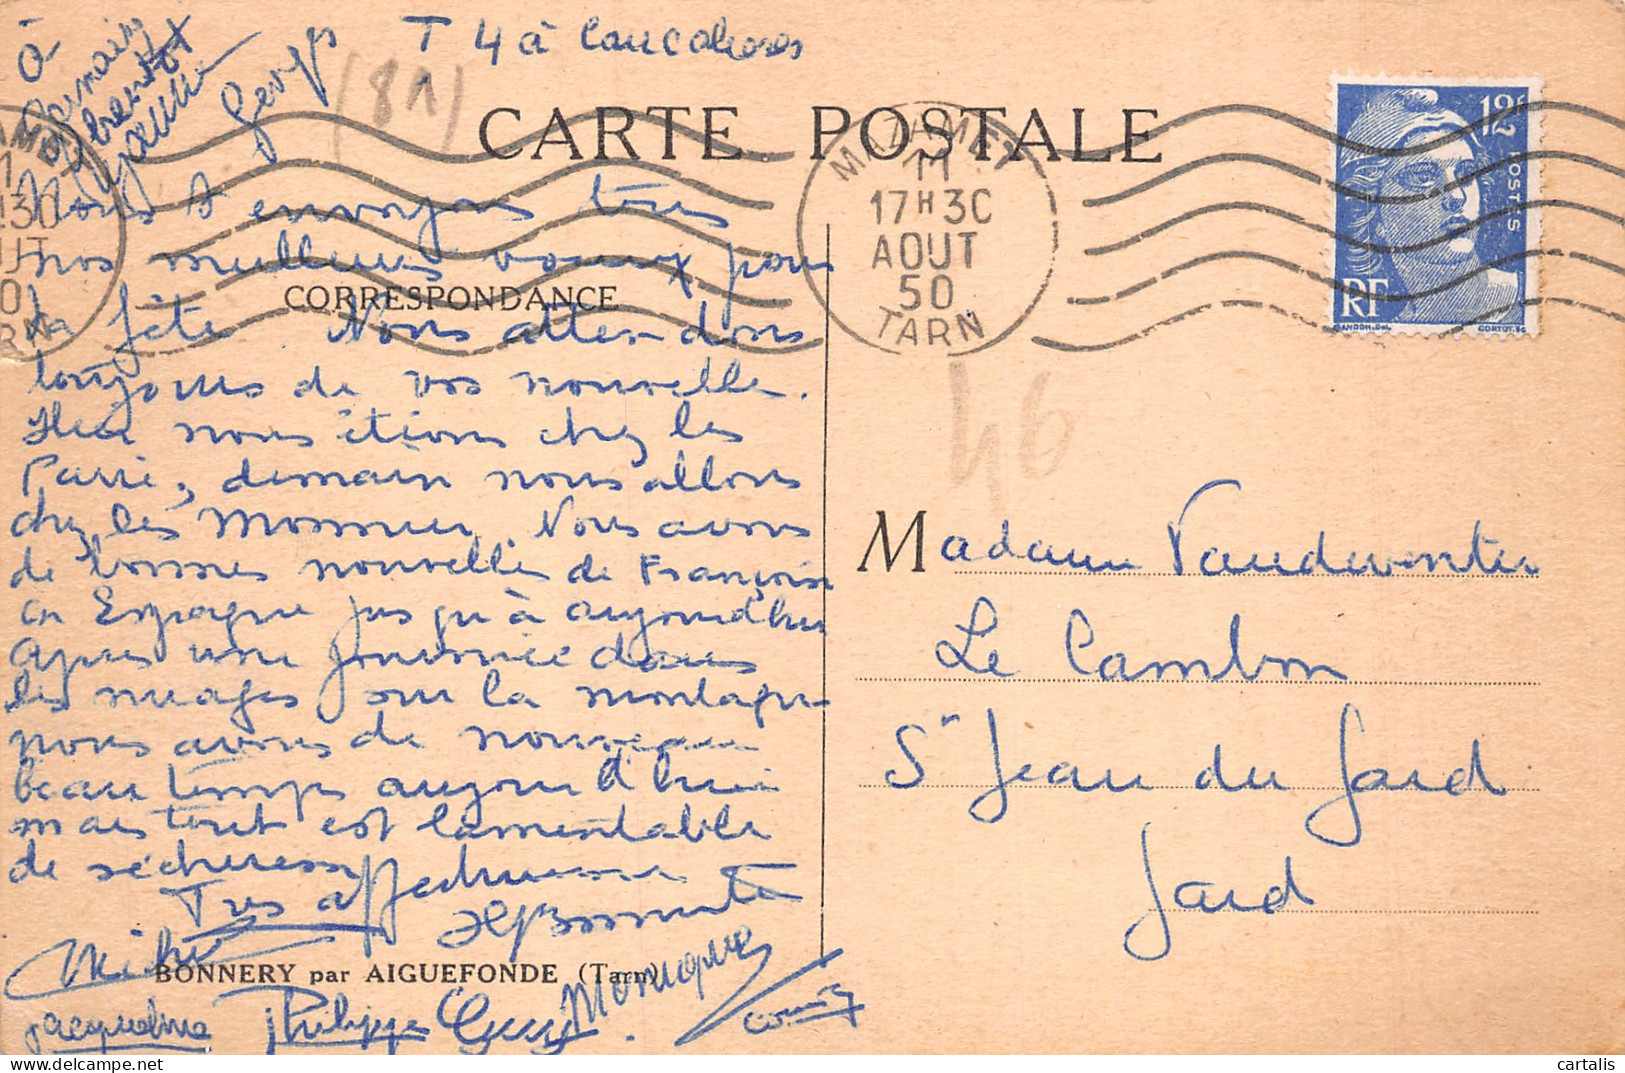 à
Georges
T 4 à Caucalières
(81)
CARTE POSTALE
MAZAMET
11
17H30
AOUT
50
TARN
12F
POSTES
RF
GANDON.Del.
CORTOT.Sc
Nous envoyons tous
nos meilleurs voeux pour
CORRESPONDANCE
la fête Nous attendons
toujours de vos nouvelles.
Hier nous étions chez les
Parri, demain nous allons
chez les Monnier. Nous avons
de bonnes nouvelles de Françoise
en Espagne jusqu'à aujourd'hui
après une journée dans
les nuages sur la montagne
nous avons de nouveau
beau temps aujourd'hui
mais tout est lamentable
de sécheresse
Très affectueusement
BONNERY par AIGUEFONDE (Tarn)
Jacqueline Philippe Guy Monique
46
Madame Vandeventer
Le Cambon
St Jean du Gard
Gard
cartalis